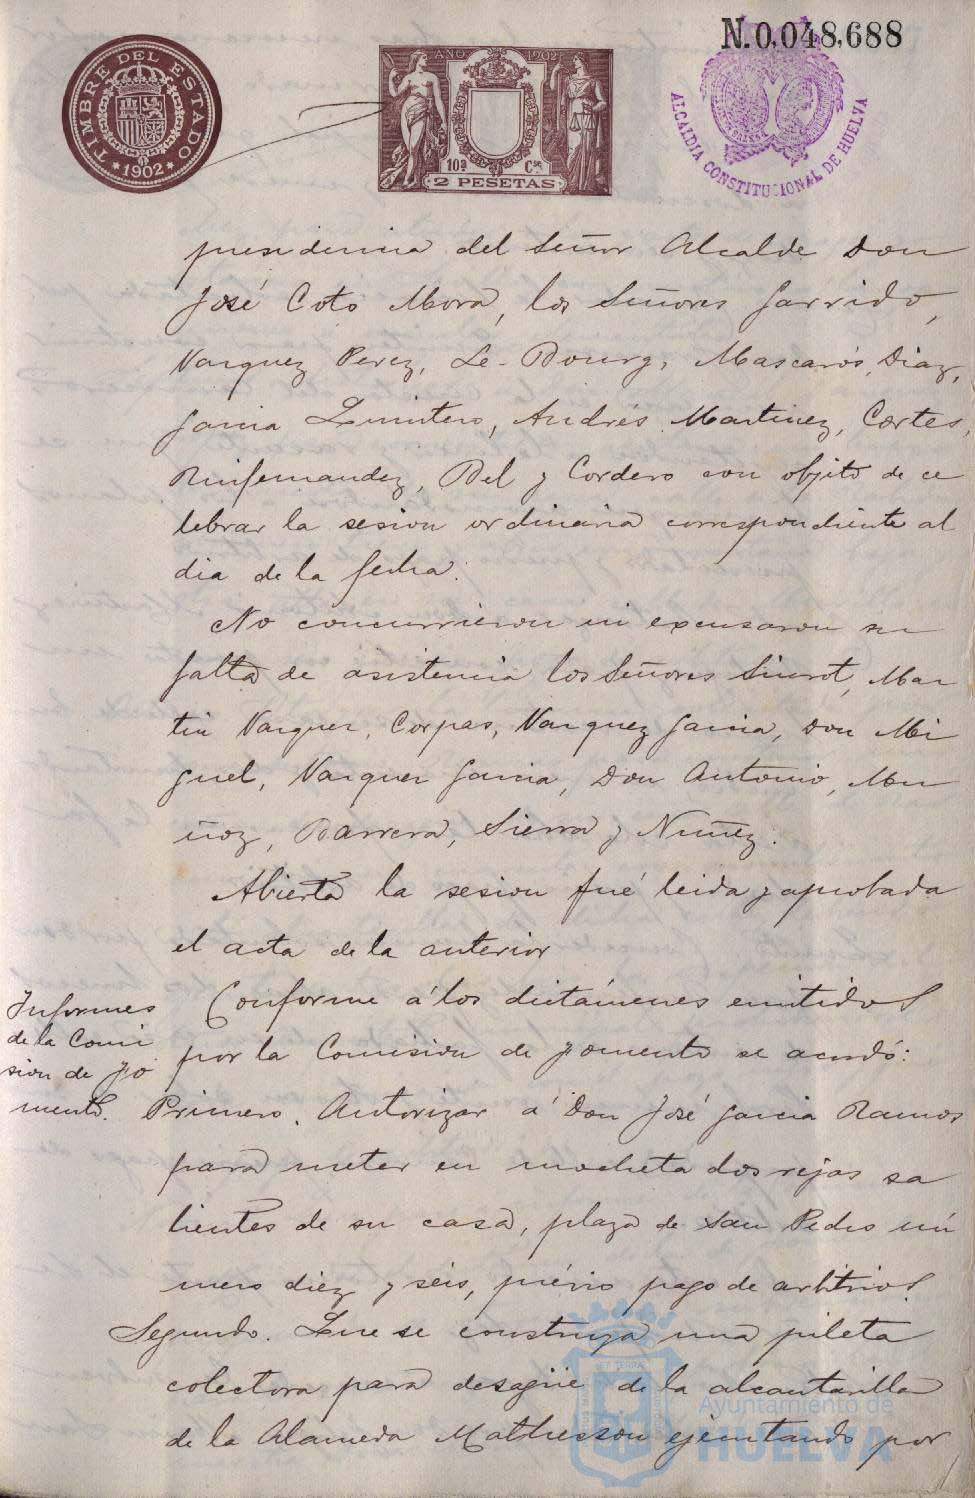 N. 0,048,688
TIMBRE DEL ESTADO
1902
AÑO 1902
10ª Cse
2 PESETAS
ALCALDIA CONSTITUCIONAL DE HUELVA
presidencia del Señor Alcalde Don
José Coto Mora, los Señores Garrido,
Vazquez Perez, Le-Bourg, Mascarós, Diaz,
Garcia Quintero, Andrés Martinez, Cortes,
Ruifernandez, Bel y Cordero con objeto de ce
lebrar la sesion ordinaria correspondiente al
dia de la fecha.
No concurrieron ni excusaron su
falta de asistencia los Señores Siurot, Mar
tin Vazquez, Corpas, Vazquez Garcia, Don Mi
guel, Vazquez Garcia, Don Antonio, Mu
ñoz, Barrera, Sierra y Nuñez.
Abierta la sesion fué leida y aprobada
el acta de la anterior
Informes
de la Comi
sion de Fo
mento.
Conforme á los dictámenes emitidos
por la Comision de Fomento se acordó:
Primero. Autorizar á Don José Garcia Ramos
para meter en mocheta dos rejas sa
lientes de su casa, plaza de San Pedro nú
mero diez y seis, prévio pago de arbitrios.
Segundo. Que se construya una pileta
colectora para desagüe de la alcantarilla
de la Alameda Mathesson ejecutando por
Ayuntamiento de
HUELVA